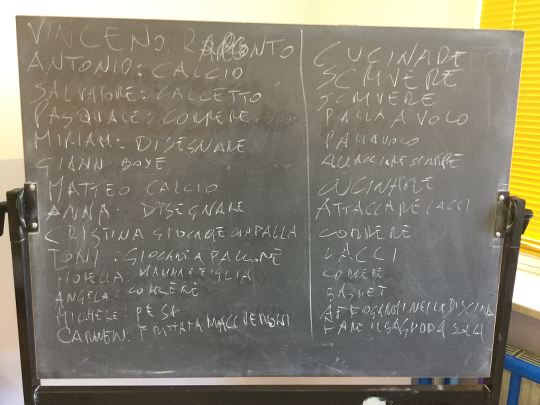 VINCENO RAPONTO
ANTONIO: CALCIO
SALVATORE: CALCETTO
PASQUALE: CORRERE
MIRIAM: DISEGNARE
GIANN BOXE
MATTEO CALCIO
ANNA: DISEGNARE
CRISTINA GIOCARE A PALLA
TONI: GIOCARE A PALLONE
FIORELLA: MANIGLIA
ANGELA: CORRERE
MICHELE: PESA
CARMEN: FRITTATA MACCHERONI
CUCINARE
SCRIVERE
SCRIVERE
PALLAVOLO
PALLAVOLO
SEMPRE
CUCINARE
ATTACCARE LACCI
CORRERE
LACCI
CORRERE
BASKET
AFFOGARSI NELLA PISCINA
FARE IL BAGNO DA SOLA